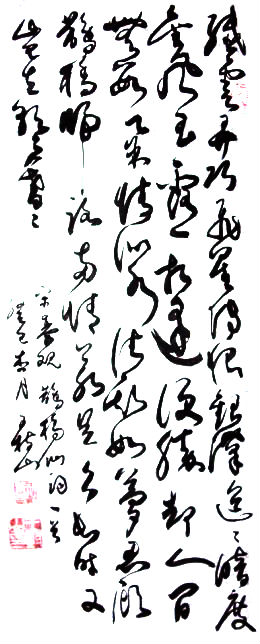 纖雲弄巧飛星傳恨銀漢迢々暗度
金風玉露一相逢便勝却人間
無數柔情似水佳期如夢忍顧
鵲橋歸路兩情若是久長時又
豈在朝々暮々
宋秦观鵲橋仙詞一首
癸巳月山